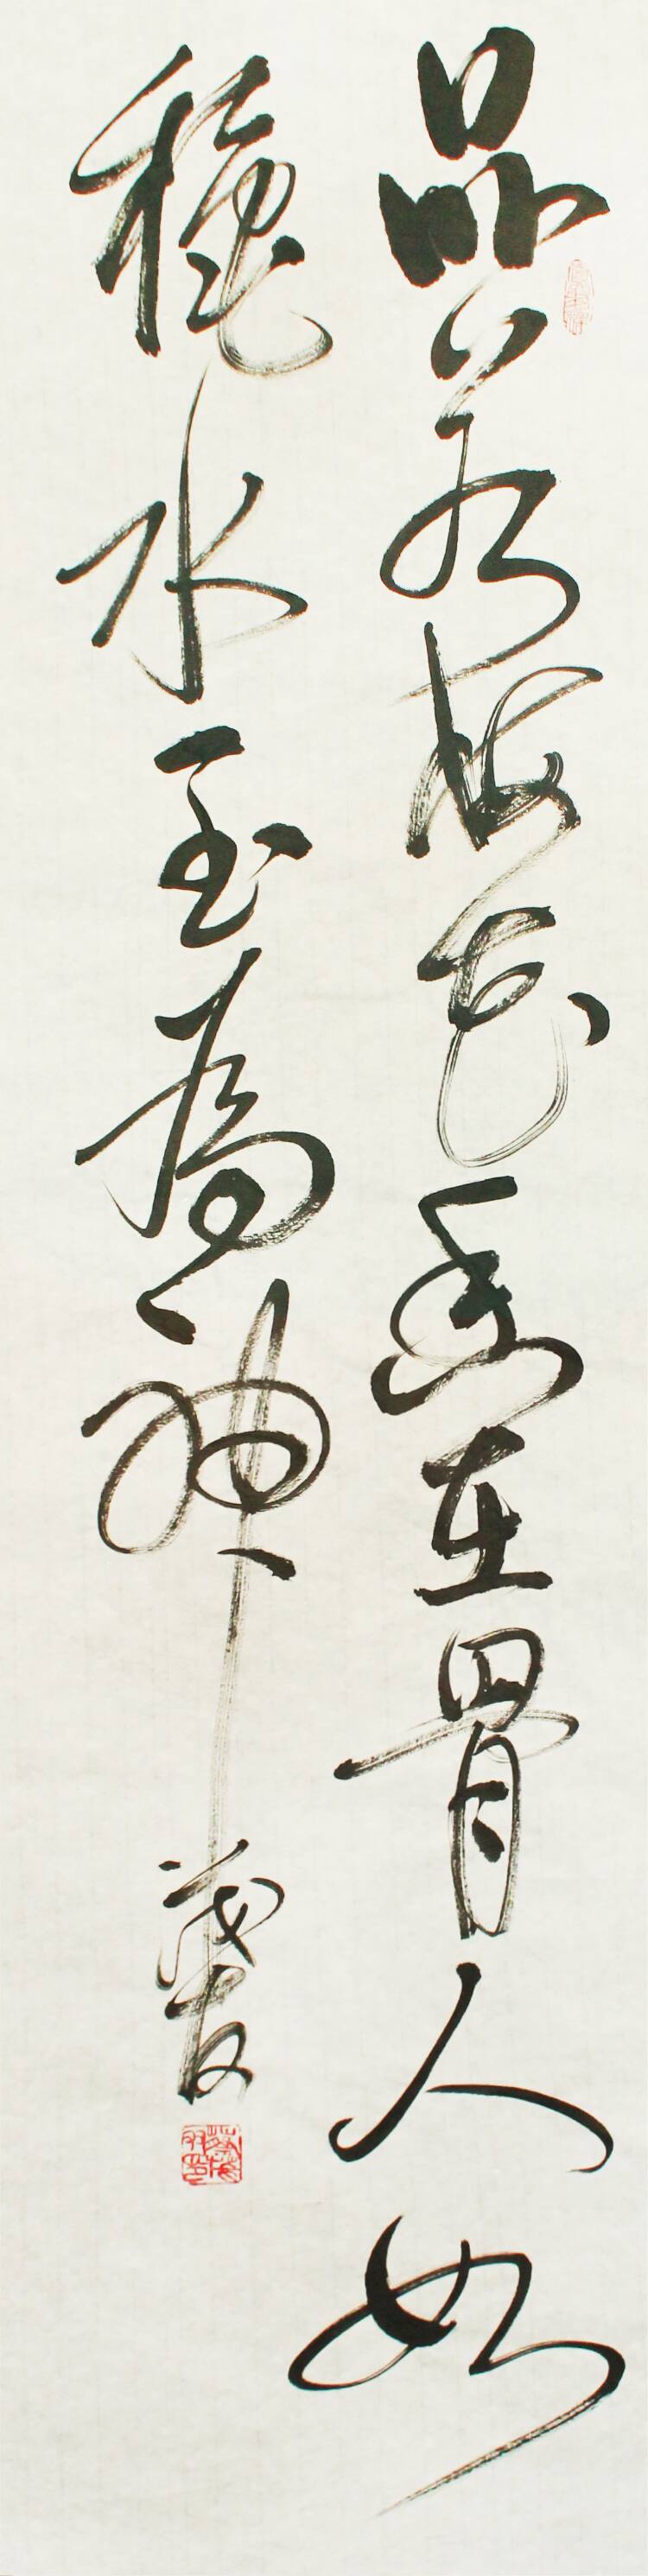 品若梅花香在骨人如
秋水玉為神
茂友